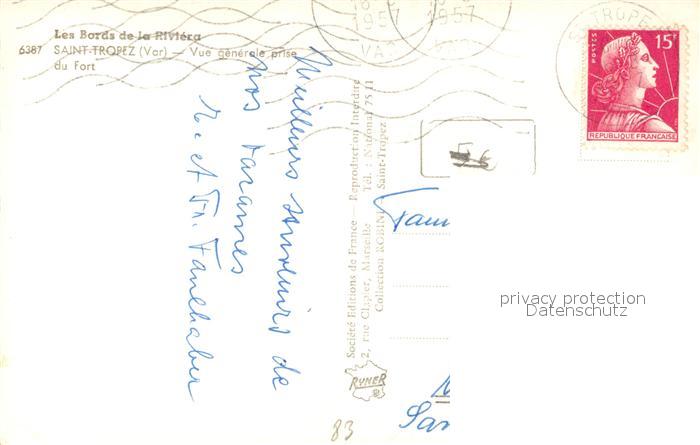 Les Bords de la Riviéra
6387 SAINT-TROPEZ (Var) — Vue générale prise
du Fort
1957
VAR
1957
ST TROPEZ
POSTES
15F
REPUBLIQUE FRANÇAISE
Meilleurs souvenirs de
nos vacances
et Fr. Faulhaber
Société Editions de France — Reproduction Interdite
2, rue Clapier, Marseille Tél. : National 75 11
Collection ROBIN Saint-Tropez
RYNER
Fam
privacy protection
Datenschutz
83